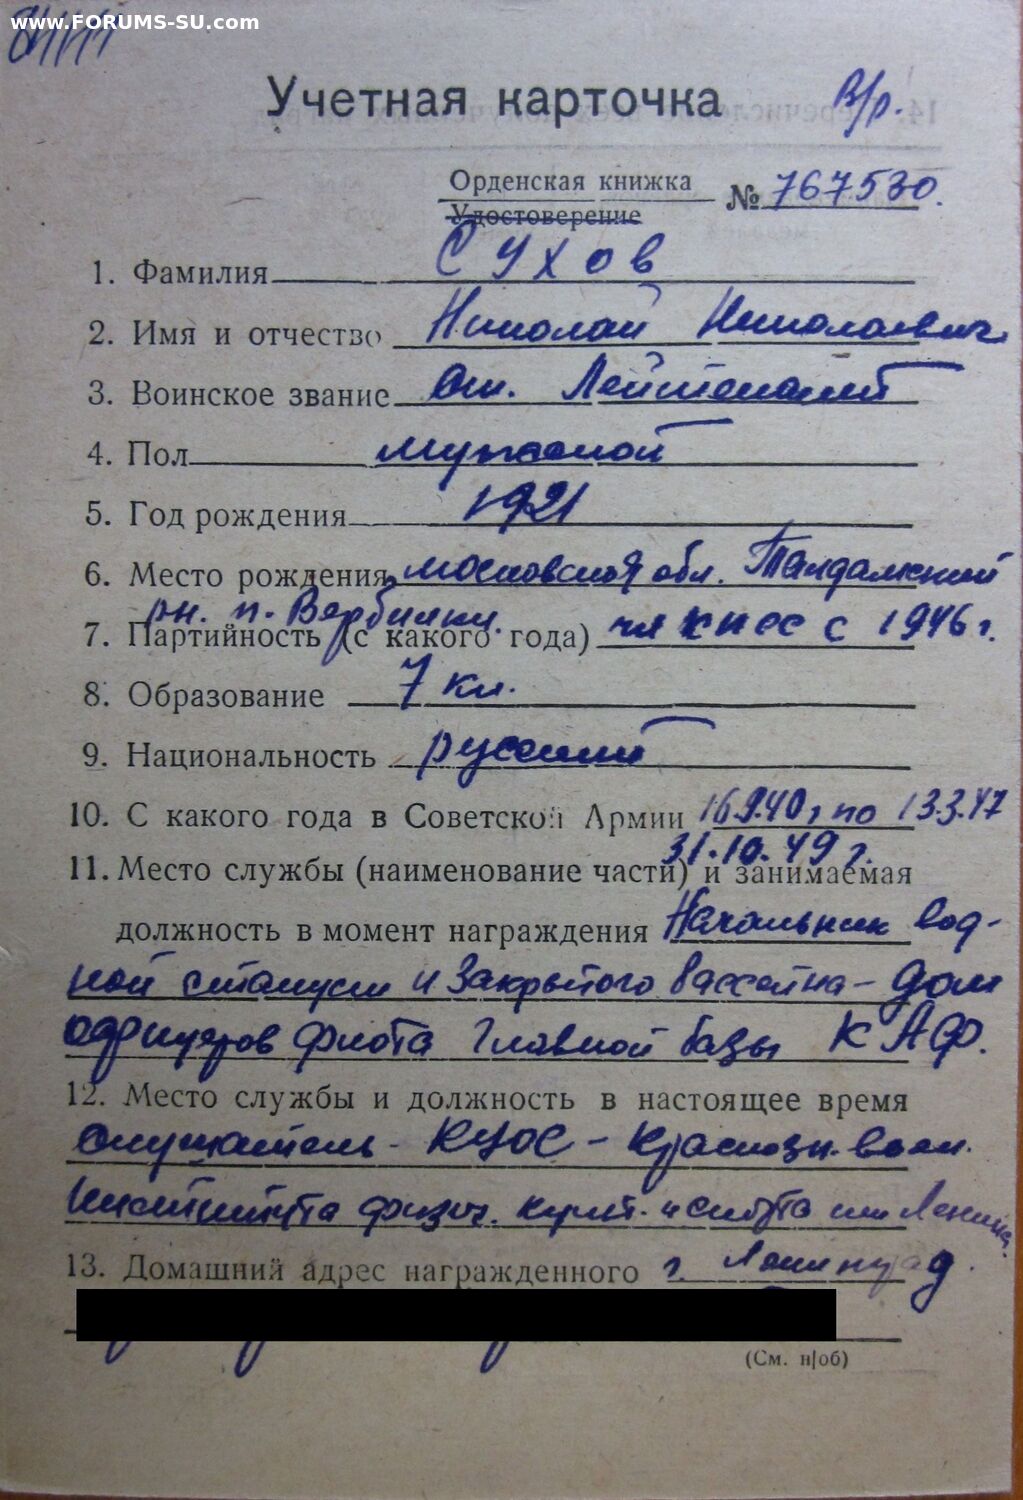 www.FORUMS-SU.com
Учетная карточка В/р.
Орденская книжка № 767530.
Удостоверение
1. Фамилия Сухов
2. Имя и отчество Николай Николаевич
3. Воинское звание Ст. Лейтенант
4. Пол мужской
5. Год рождения 1921
6. Место рождения Московская обл. Талдомский
рн. п. Вербилки.
7. Партийность (с какого года) чл КПСС с 1946 г.
8. Образование 7 кл.
9. Национальность русский
10. С какого года в Советской Армии 16.9.40 г по 13.3.47
31.10.49 г.
11. Место службы (наименование части) и занимаемая
должность в момент награждения Начальник вод-
ной станции и Закрытого бассейна - Дом
офицеров флота Главной базы КАФ.
12. Место службы и должность в настоящее время
слушатель - КУОС - Краснозн. воен.
Института физич. культ. и спорта им Ленина.
13. Домашний адрес награжденного г. Ленинград.
(См. н/об)